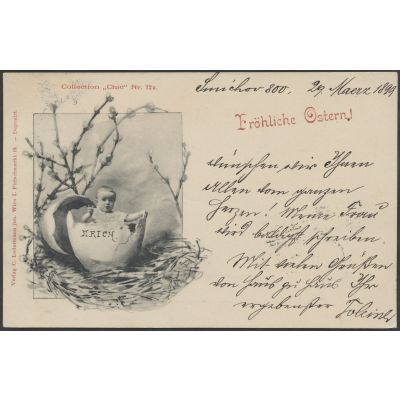 Collection „Chic" Nr. 12a.
Smichov 800. 29. Maerz 1899
Fröhliche Ostern!
wünschen wir Ihnen
Allen vom ganzen
Herzen! Meine Frau
wird schreiben.
Mit vielen Grüßen
von Haus zu Haus Ihr
ergebenster
ULRICH
Verlag C. Ledermann jun. Wien I. Fleischmarkt 19. — Deponirt.